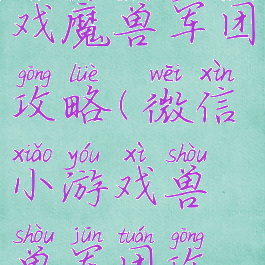 戏魔兽军团
gōng lüè wēi xìn
攻略(微信
xiǎo yóu xì shòu
小游戏兽
shòu jūn tuán gōng
兽军团攻